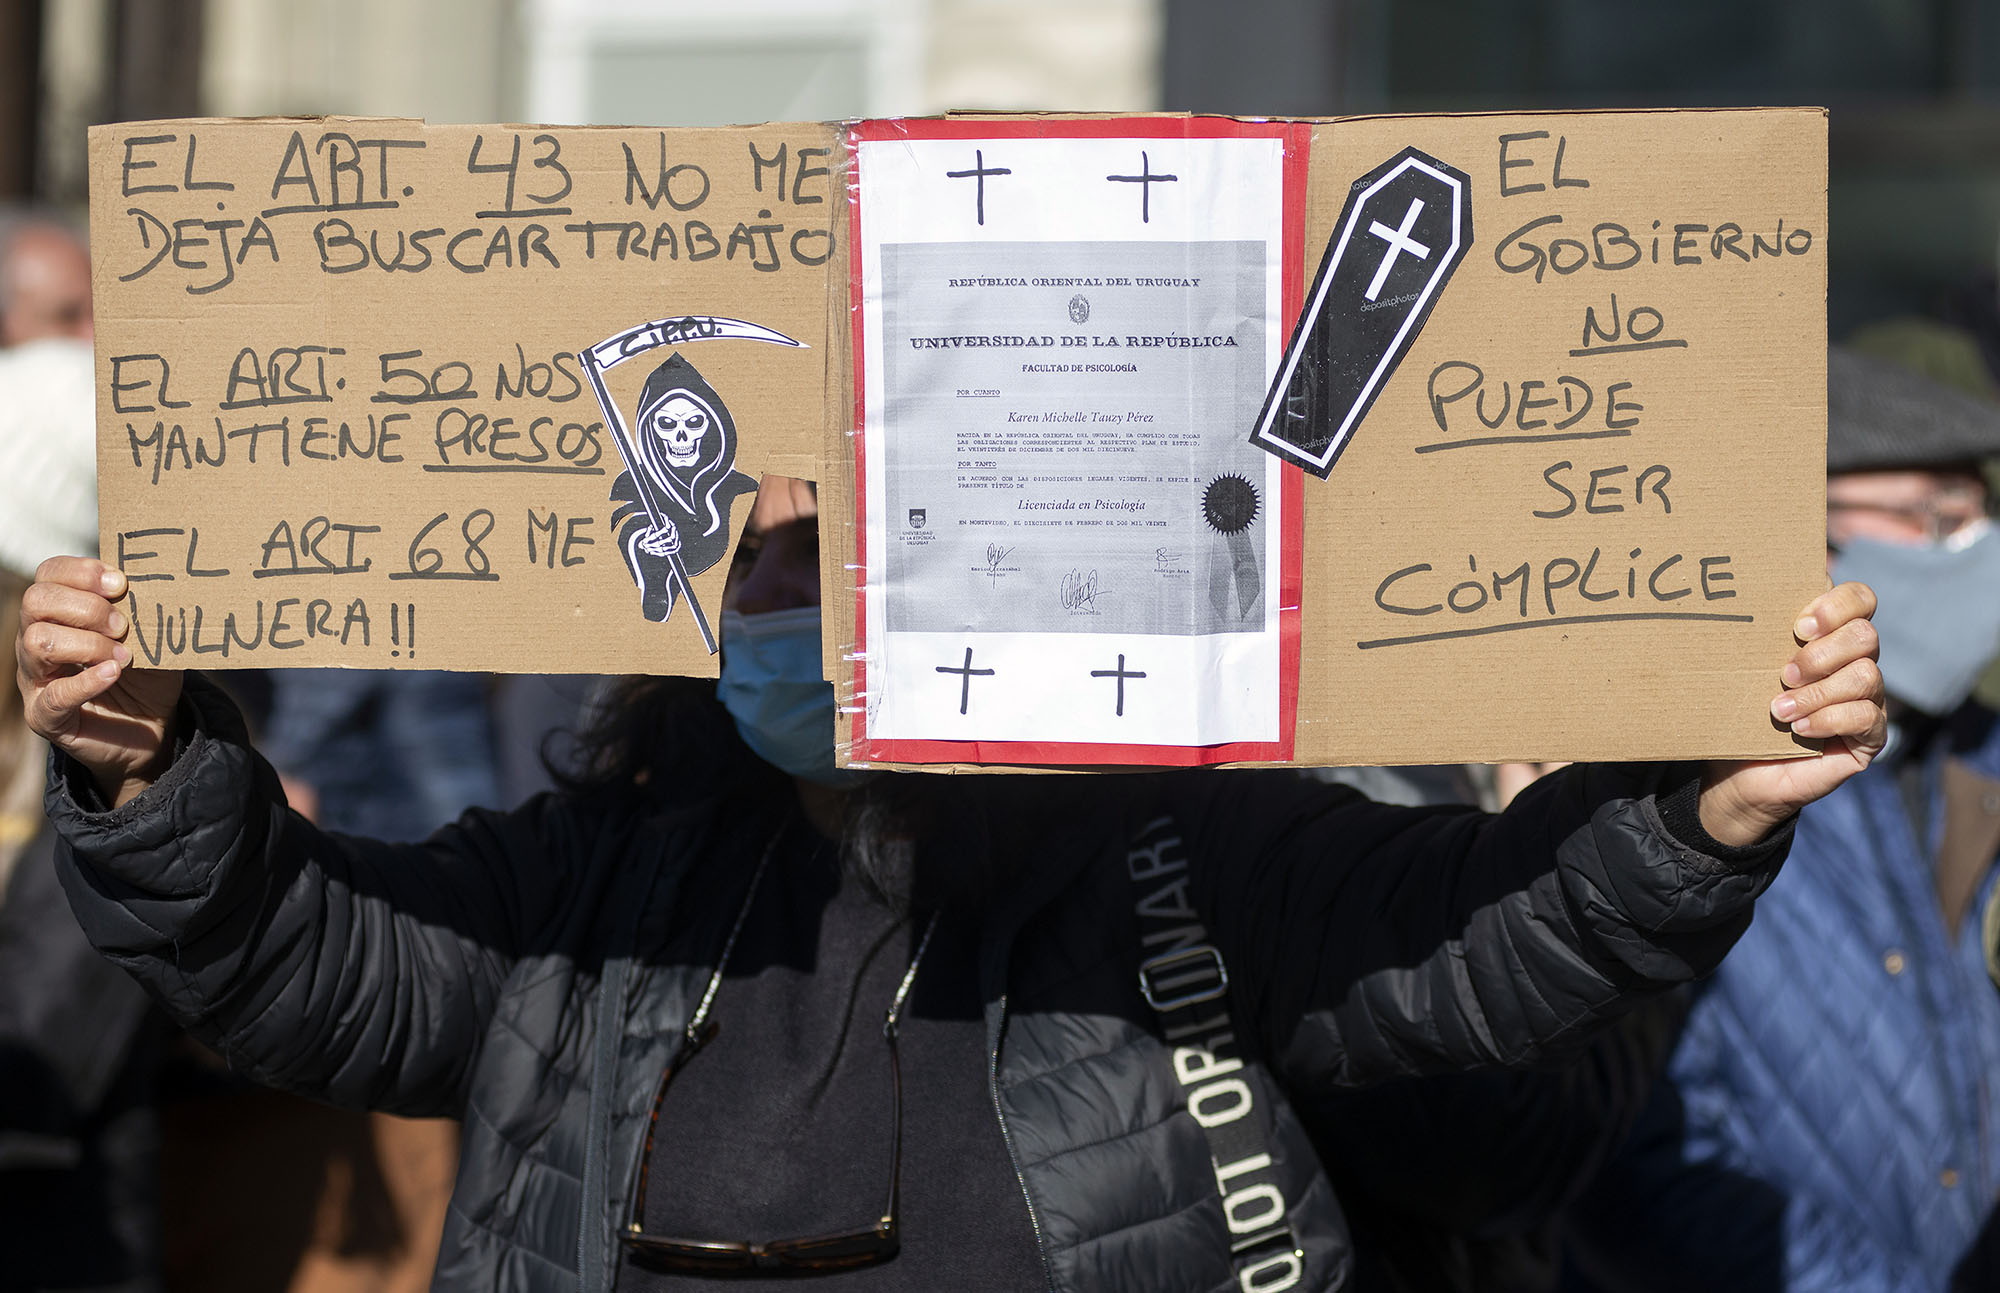 EL ART. 43 NO ME
DEJA BUSCAR TRABAJO
EL ART. 50 NOS
MANTIENE PRESOS
EL ART 68 ME
VULNERA!!
C.J.P.P.U.
REPÚBLICA ORIENTAL DEL URUGUAY
UNIVERSIDAD DE LA REPÚBLICA
FACULTAD DE PSICOLOGÍA
POR CUANTO
Karen Michelle Tauzy Pérez
NACIDA EN LA REPÚBLICA ORIENTAL DEL URUGUAY, HA CUMPLIDO CON TODAS
LAS OBLIGACIONES CORRESPONDIENTES AL RESPECTIVO PLAN DE ESTUDIO,
EL VEINTITRÉS DE DICIEMBRE DE DOS MIL DIECINUEVE.
POR TANTO
DE ACUERDO CON LAS DISPOSICIONES LEGALES VIGENTES, SE EXPIDE EL
PRESENTE TÍTULO DE
Licenciada en Psicología
EN MONTEVIDEO, EL DIECISIETE DE FEBRERO DE DOS MIL VEINTE
UNIVERSIDAD
DE LA REPÚBLICA
URUGUAY
Decano
Rodrigo Arim
Rector
Interesada
depositphotos
EL
GOBIERNO
NO
PUEDE
SER
CÓMPLICE